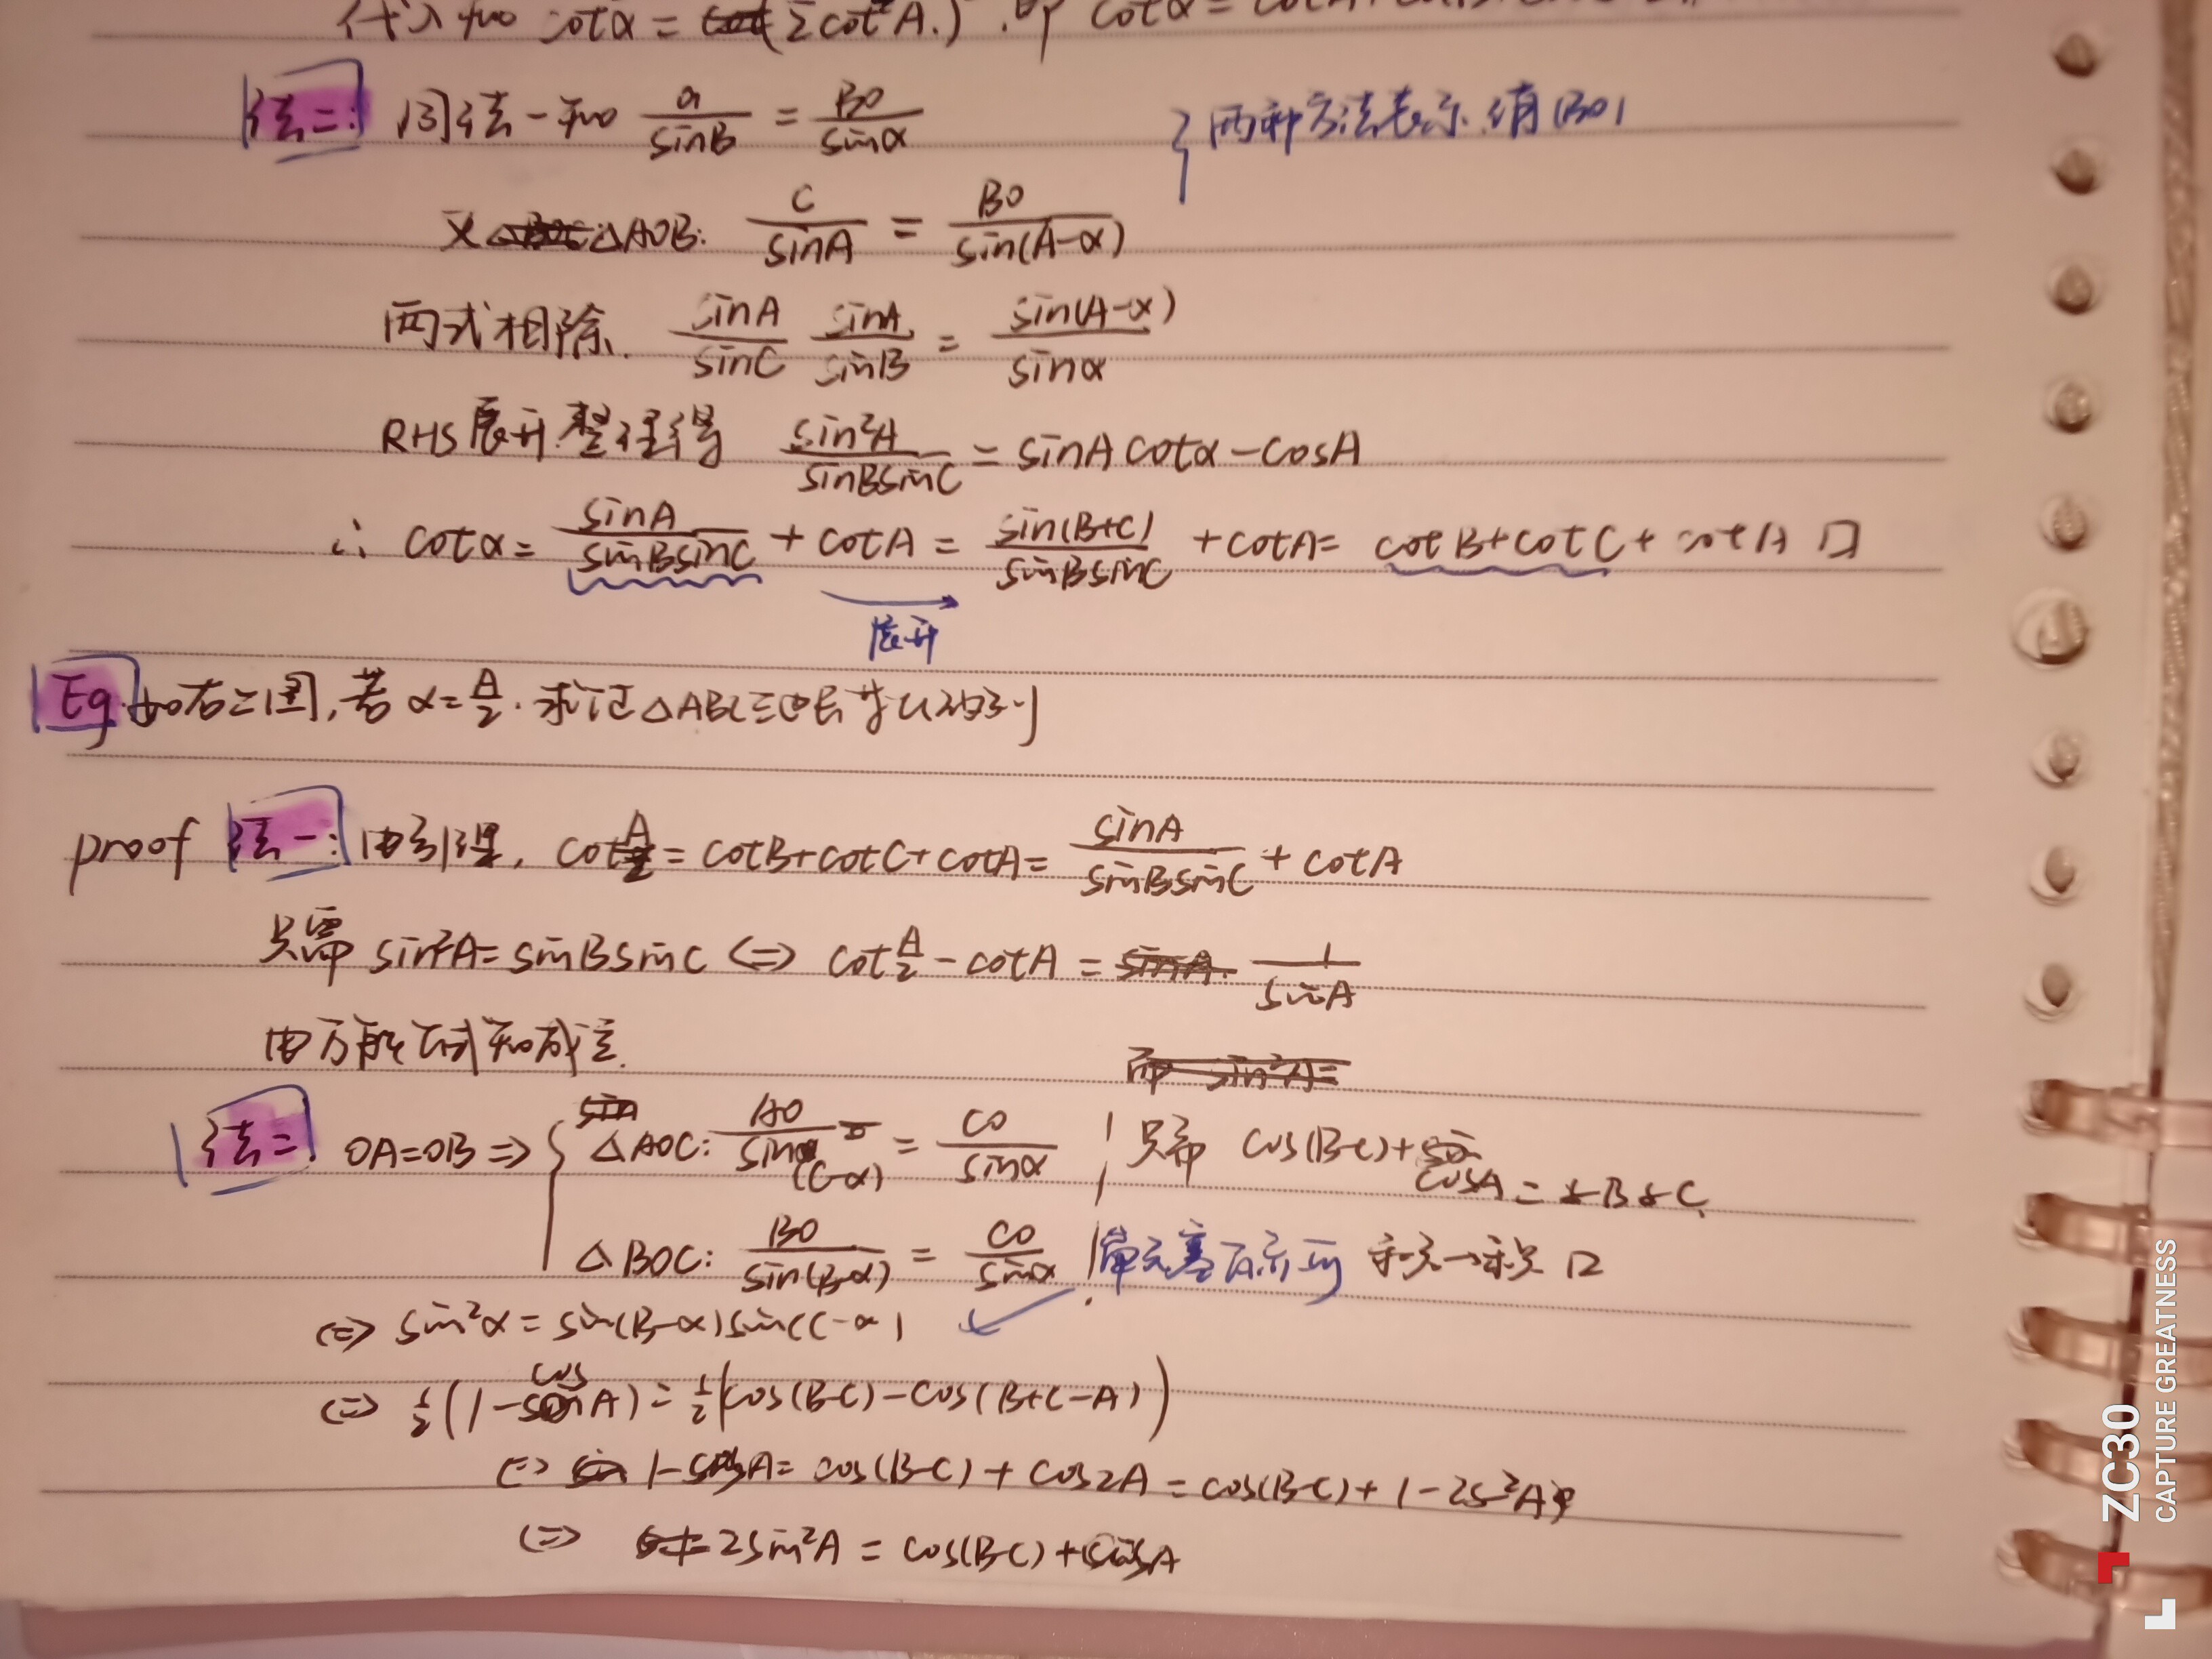 代入知 cotα = (Σcot A.) . 即 cotα =
法二: 同法一知 a/sinB = BO/sinα } 两种方法表示,消BO!
又 △AOB: c/sinA = BO/sin(A-α)
两式相除. sinA/sinC sinA/sinB = sin(A-α)/sinα
RHS展开.整理得 sin²A/sinBsinC = sinA cotα - cosA
∴ cotα = sinA/sinBsinC + cotA = sin(B+C)/sinBsinC + cotA = cotB+cotC+cotA □
展开
Eg 如右上图,若 α=A/2. 求证△ABC三边长成等比数列
proof 法一: 由引理, cot A/2 = cotB+cotC+cotA = sinA/sinBsinC + cotA
只需 sin²A=sinBsinC <=> cot A/2 - cotA = 1/sinA
由万能公式知成立.
法二 OA=OB => { △AOC: AO/sin(C-α) = CO/sinα
只需 cos(B-C)+cosA = 2sBsC.
△BOC: BO/sin(B-α) = CO/sinα
和差→积 □
<=> sin²α = sin(B-α)sin(C-α)
<=> ½(1-cosA) = ½(cos(B-C)-cos(B+C-A))
<=> 1-cosA = cos(B-C) + cos2A = cos(B-C)+1-2s²A
<=> 2sin²A = cos(B-C)+cosA
ZC30
CAPTURE GREATNESS